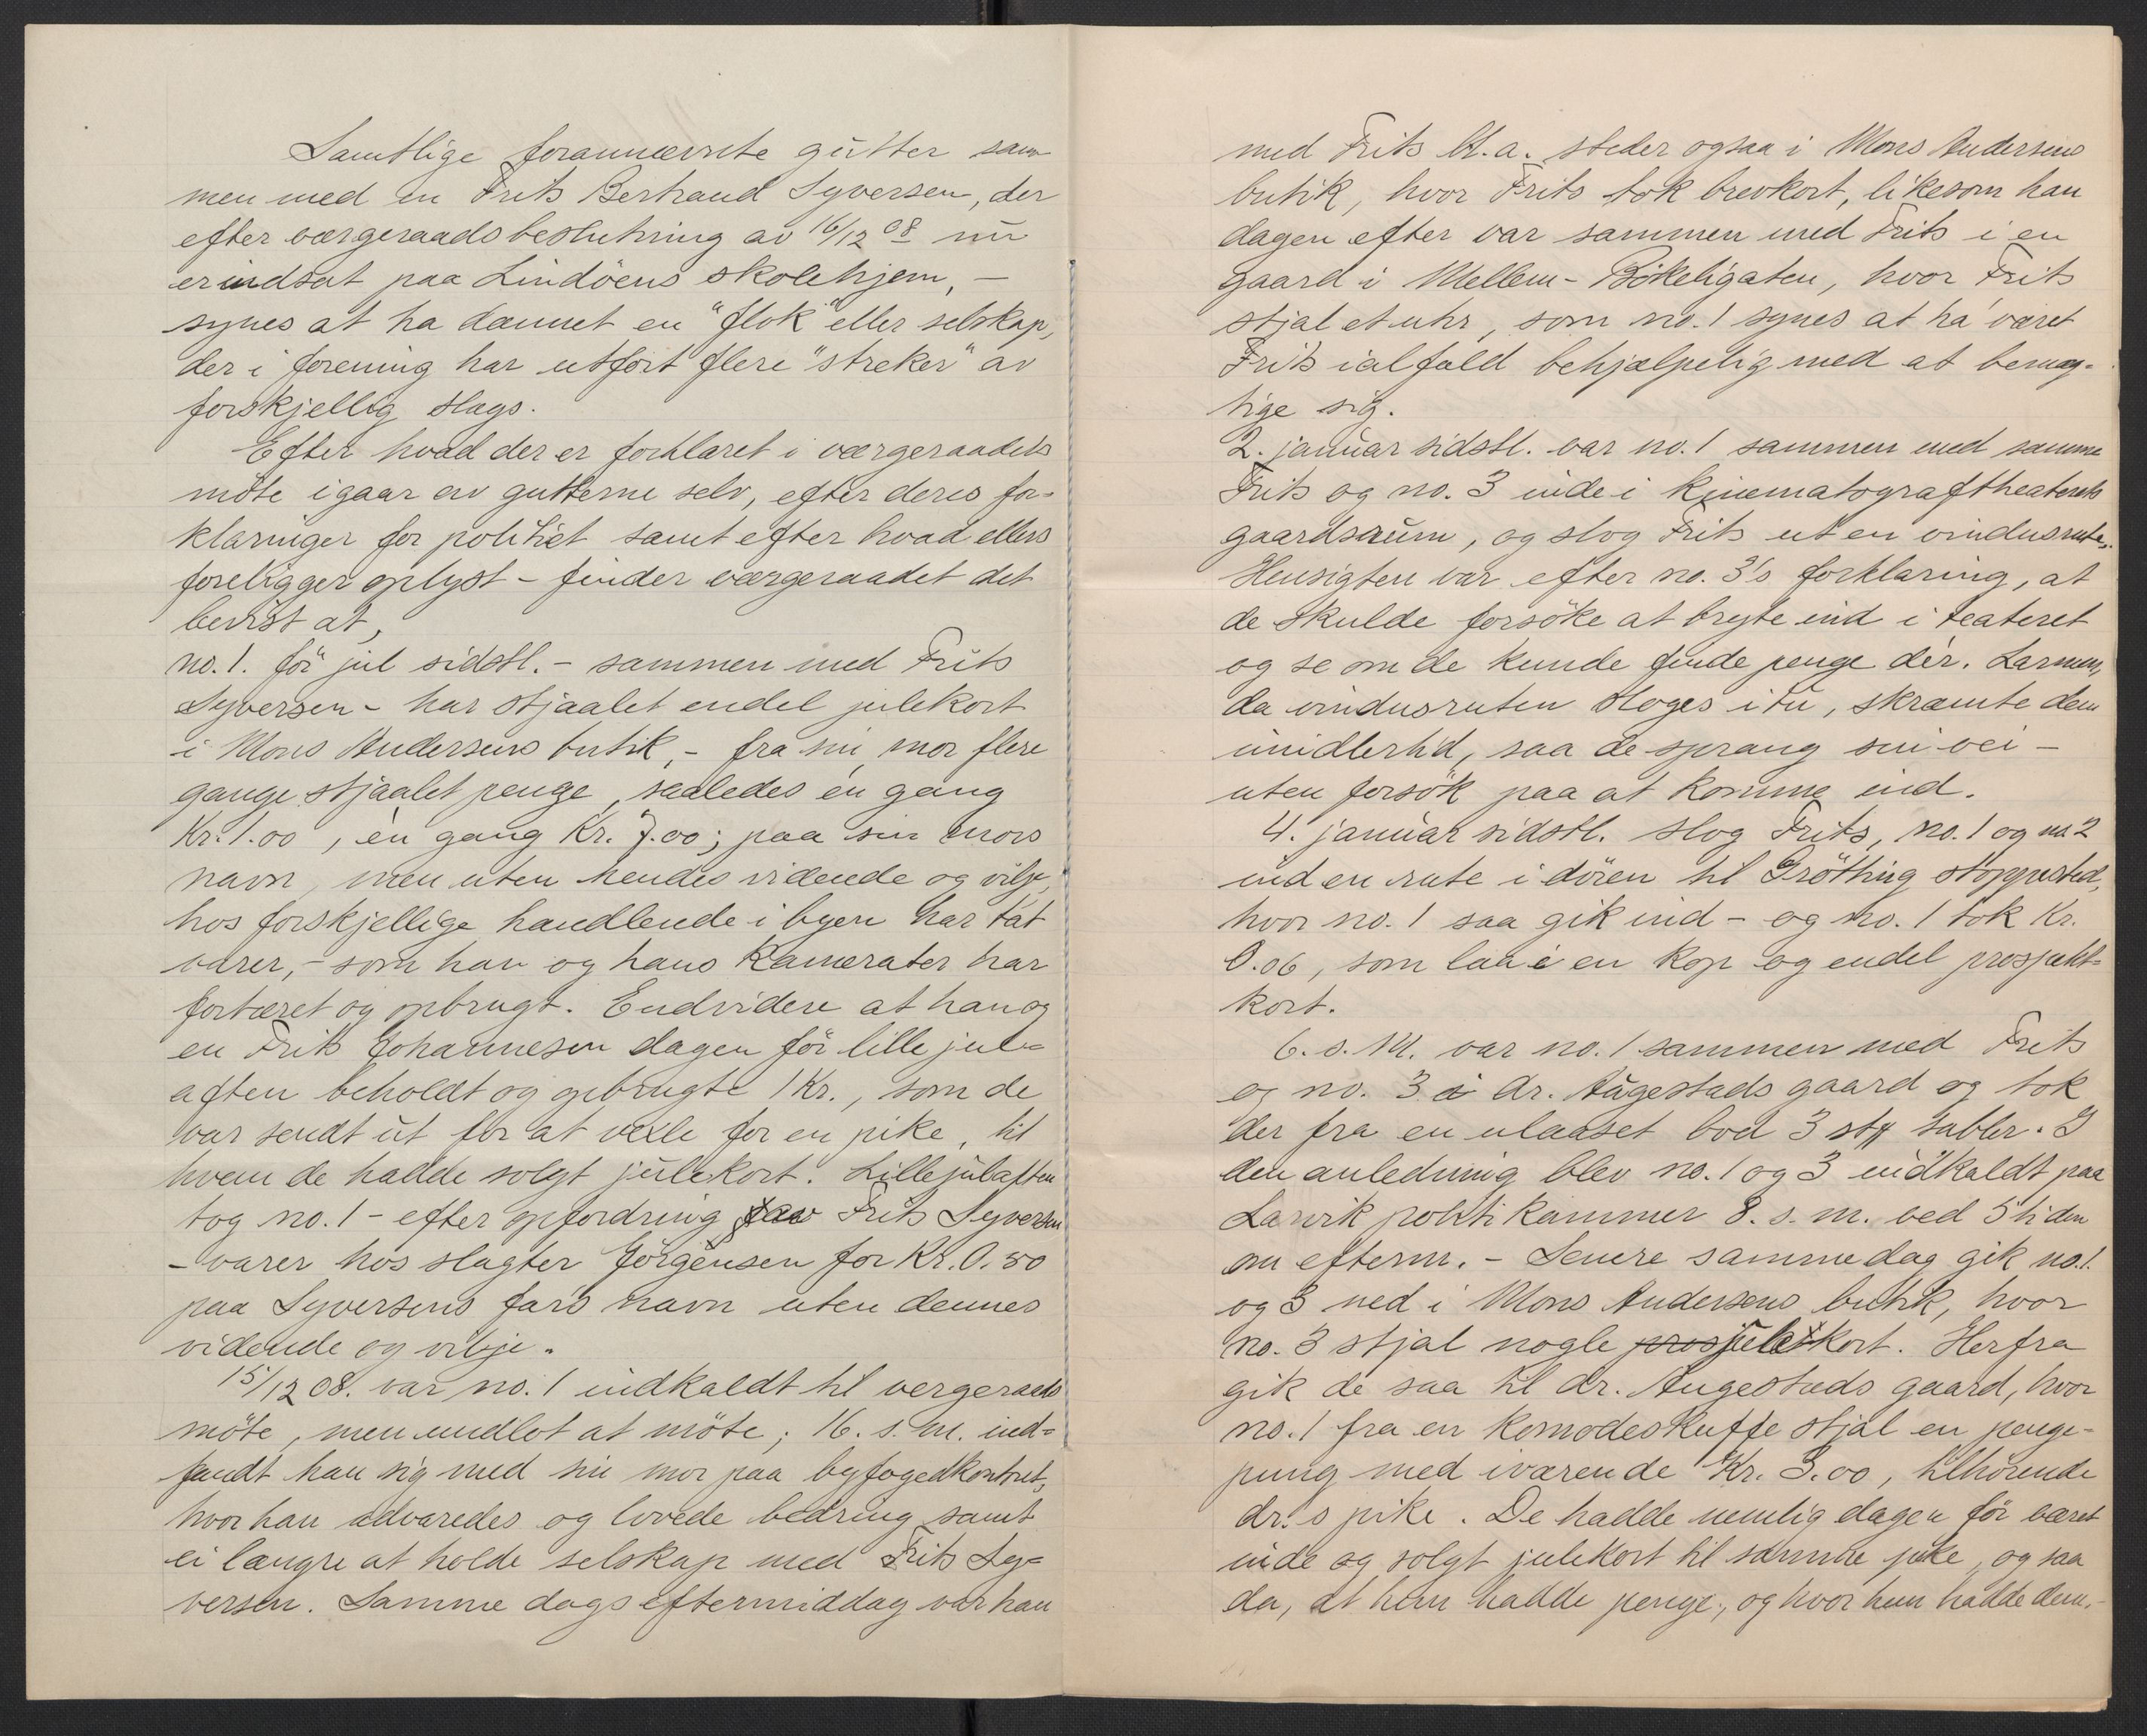 Samtlige forannævnte gutter sam
men med en Frits Bertrand Syversen, der
efter værgeraadsbeslutning av 16/12 08 nu
er indsat paa Lindöens skolehjem, -
synes at ha dannet en "flok" eller selskap,
der i forening har utfört flere "streker" av
forskjellig slags.
Efter hvad der er forklaret i værgeraadets
möte igaar av gutterne selv, efter deres for-
klaringer for politiet samt efter hvad ellers
foreligger oplyst - finder værgeraadet det
bevist at,
no. 1. för jul sidstl. - sammen med Frits
Syversen - har stjaalet endel julekort
i Mons Andersens butik, - fra sin mor flere
gange stjaalet penge, saaledes én gang
Kr. 1.00, én gang Kr. 7.00; paa sin mors
navn, men uten hendes vidende og vilje,
hos forskjellige handlende i byen har tat
varer, - som han og hans kamerater har
fortæret og opbrugt. Endvidere at han og
en Frits Johannesen dagen för lille jule-
aften beholdt og opbrugte 1 Kr., som de
var sendt ut for at vexle for en pike, til
hvem de hadde solgt julekort. Lillejulaften
tog no. 1 - efter opfordring av Frits Syversen
- varer hos slagter Jörgensen for Kr. 0.50
paa Syversens fars navn uten dennes
vidende og vilje.
15/12 08. var no. 1 indkaldt til vergeraads
möte, men undlot at möte; 16. s. m. ind-
fandt han sig med sin mor paa byfogedkontoret,
hvor han advaredes og lovede bedring samt
ei længre at holde selskap med Frits Sy-
versen. Samme dags eftermiddag var han
med Frits bl. a. steder ogsaa i Mons Andersens
butik, hvor Frits tok brevkort, likesom han
dagen efter var sammen med Frits i en
gaard i Mellem-Bökeligaten, hvor Frits
stjal et uhr, som no. 1 synes at ha været
Frits ialfald behjælpelig med at bemæg-
tige sig.
2. januar sidstl. var no. 1 sammen med samme
Frits og no. 3 inde i kinematograftheaterets
gaardsrum, og slog Frits ut en vindusrute.
Hensigten var efter no. 3's forklaring, at
de skulde forsöke at bryte ind i teateret
og se om de kunde finde penge dér. Larmen,
da vindusruten sloges itu, skræmte dem
imidlertid, saa de sprang sin vei -
uten forsök paa at komme ind.
4. januar sidstl. slog Frits, no. 1 og no 2
ind en rute i dören til Gröthing stoppested,
hvor no. 1 saa gik ind - og no. 1 tok Kr.
0.06, som laa i en kop og endel prospekt-
kort.
6. s. M. var no. 1 sammen med Frits
og no. 3 i dr. Augestads gaard og tok
der fra en ulaaset bod 3 stk sabler. I
den anledning blev no. 1 og 3 indkaldt paa
Larvik politikammer 8. s. m. ved 5 tiden
om efterm. - Senere samme dag gik no. 1.
og 3 ned i Mons Andersens butik, hvor
no. 3 stjal nogle julekort. Herfra
gik de saa til dr. Augestads gaard, hvor
no. 1 fra en komodeskuffe stjal en penge-
pung med iværende Kr. 3.00, tilhörende
dr.'s pike. De hadde nemlig dagen för været
inde og solgt julekort til samme pike, og saa
da, at hun hadde penge, og hvor hun hadde dem. -